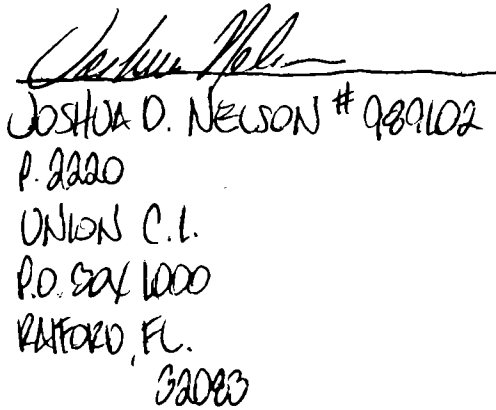 Joshua Nelson
JOSHUA D. NELSON # 989102
P. 2220
UNION C.I.
P.O. BOX 1000
RAIFORD, FL.
32083